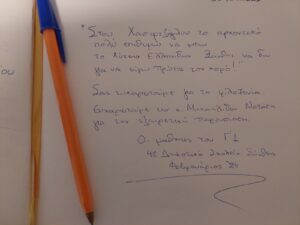 "Στου Χατζηζόγλου το αρχοντικό
πολύ επιθυμώ να μπω
το Λύκειο Ελληνίδων Ξάνθης να δω
για να είμαι πρώτος στον χορό!"
Σας ευχαριστούμε για τη φιλοξενία.
Ευχαριστούμε την κ. Μιχαηλίδου Νατάσα
για την εξαιρετική παρουσίαση.
Οι μαθητές του Γ1
4ο Δημοτικό Σχολείο Ξάνθης
Φεβρουάριος '24